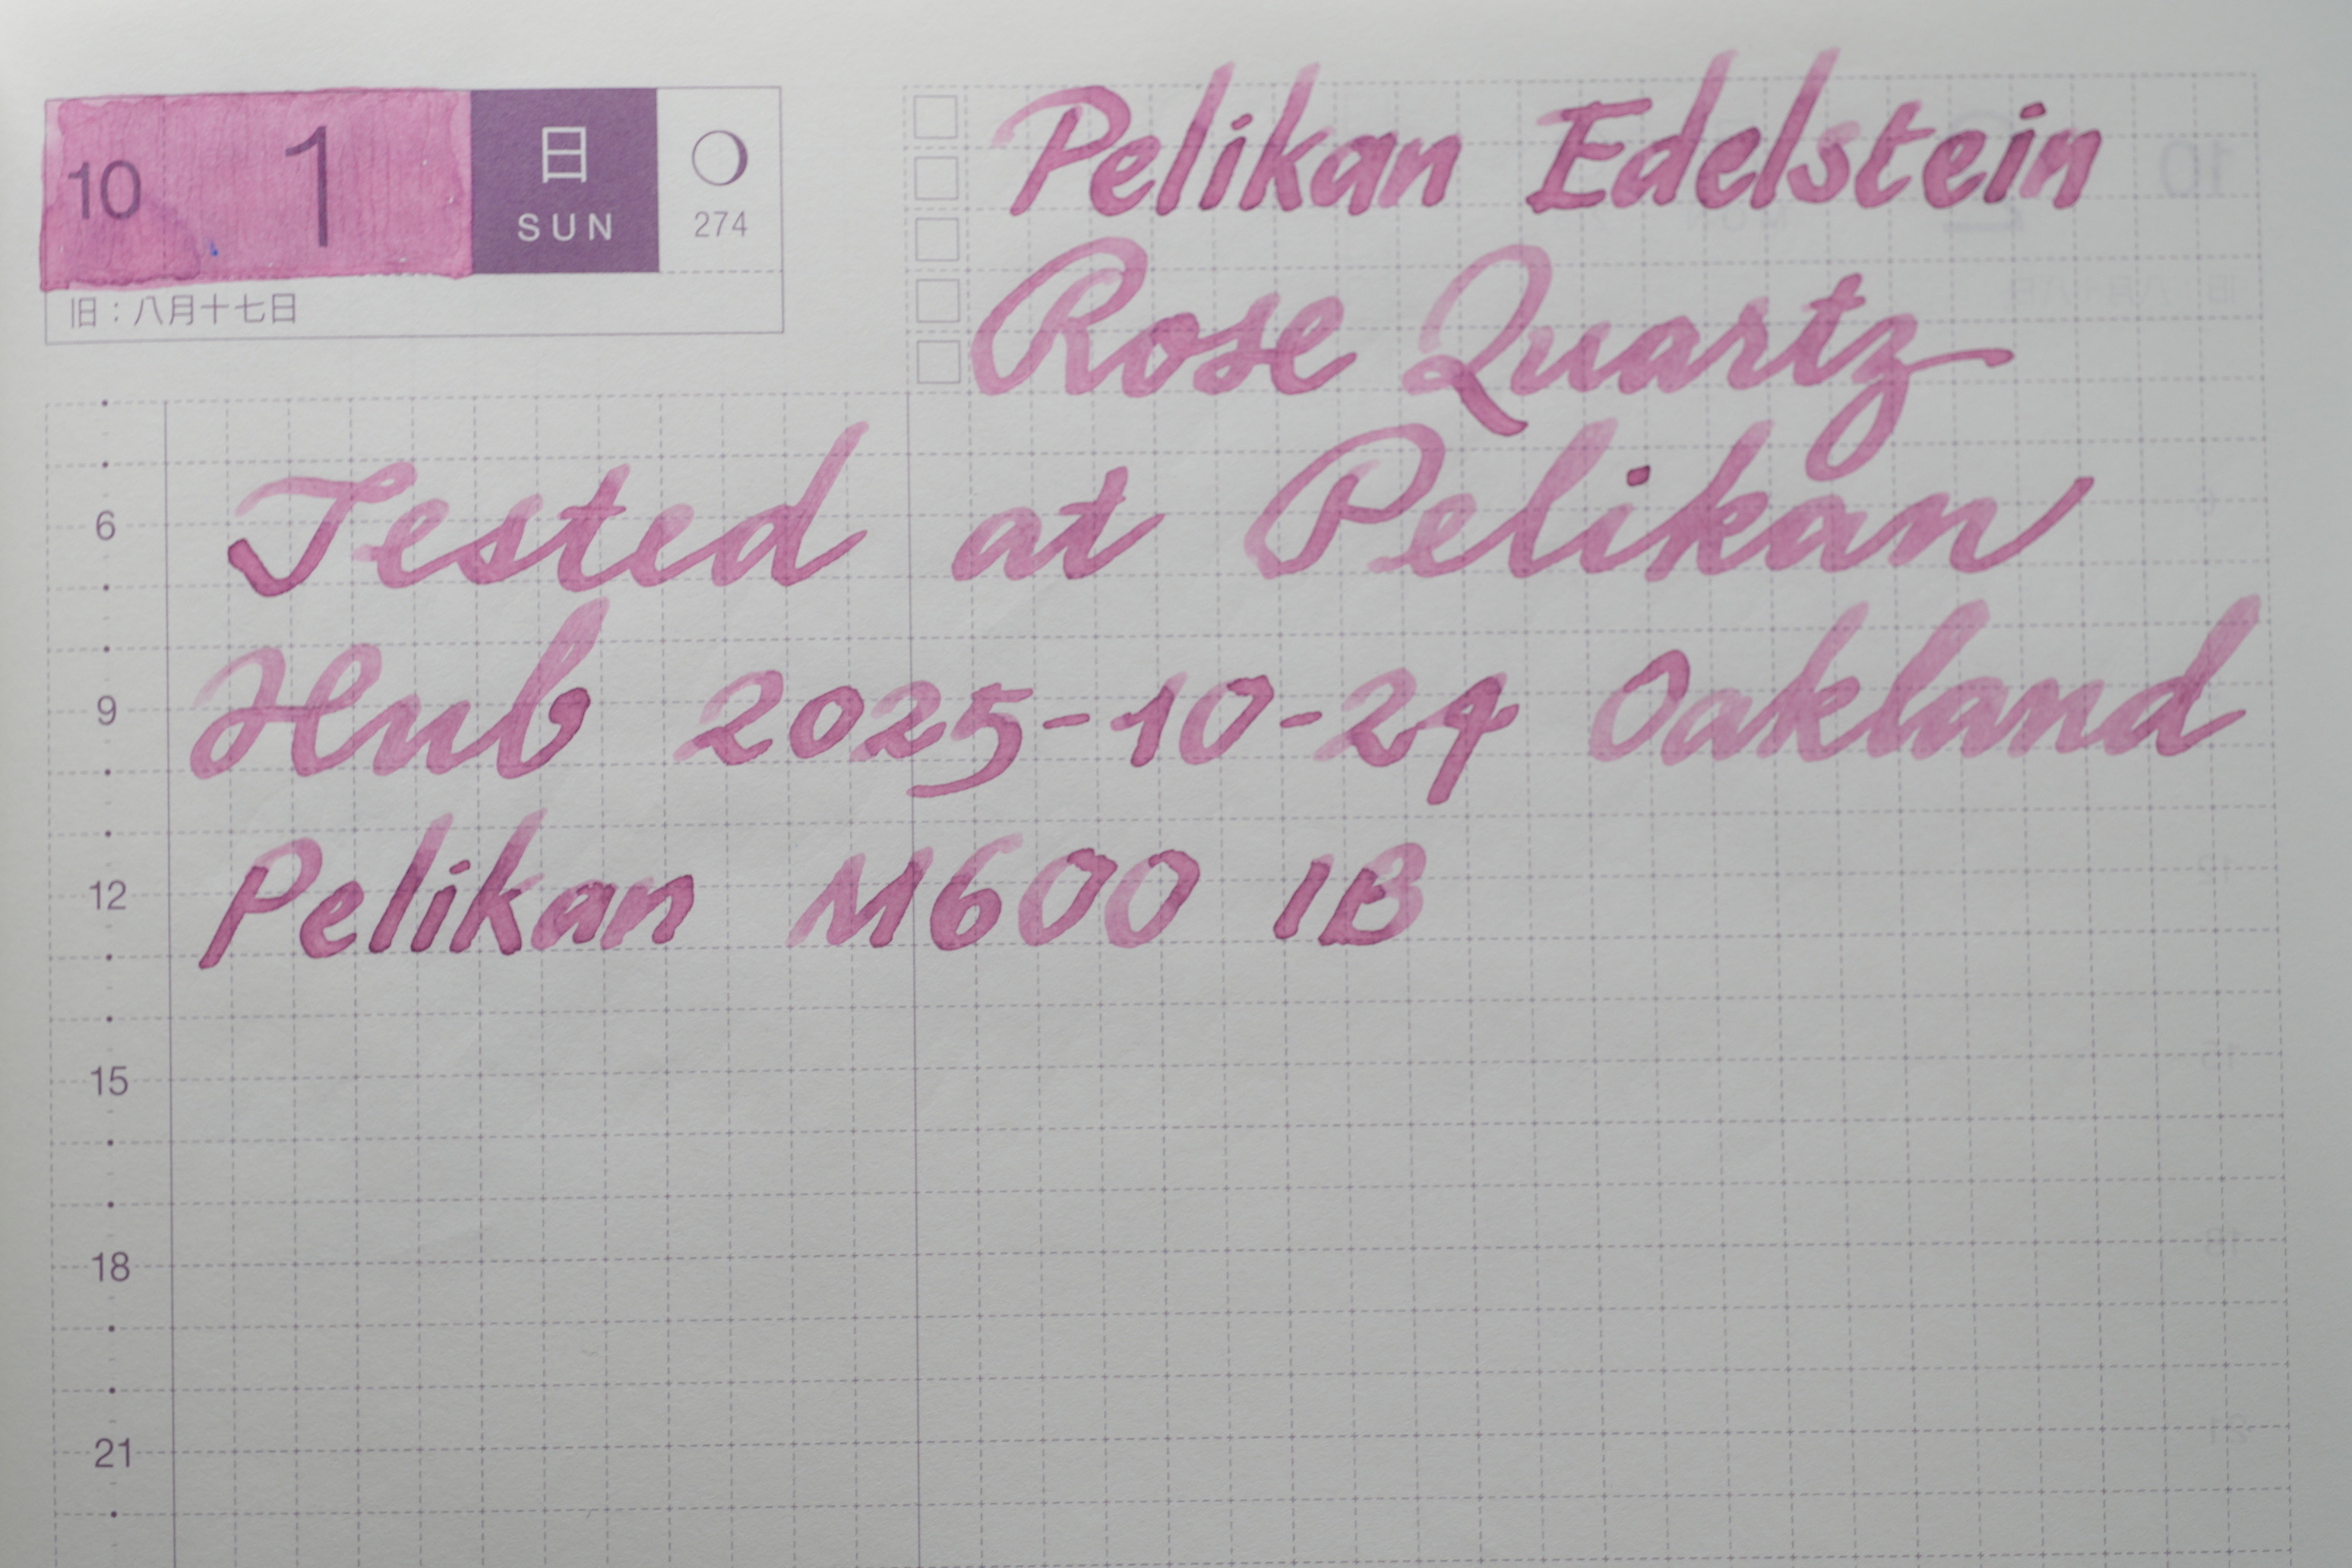 10 1 日 SUN 274
旧：八月十七日
Pelikan Edelstein
Rose Quartz
Tested at Pelikan
Hub 2025-10-24 Oakland
Pelikan M600 IB
6
9
12
15
18
21